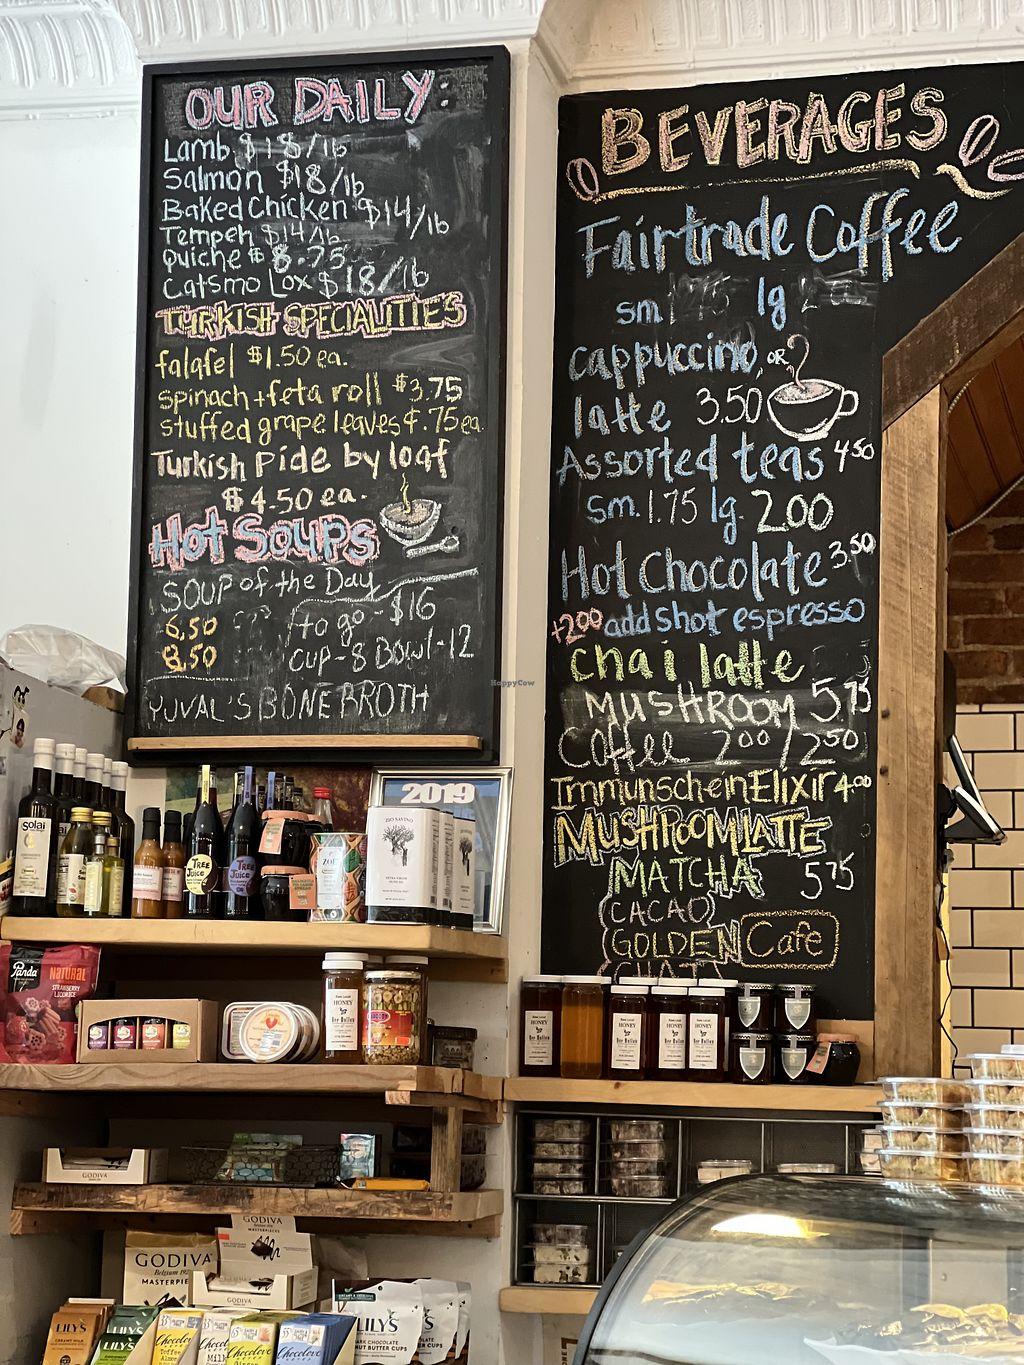 OUR DAILY:
Lamb $18/lb
Salmon $18/lb
Baked Chicken $14/lb
Tempeh $14/lb
Quiche $8.75
Catsmo Lox $18/lb
TURKISH SPECIALITIES
falafel $1.50 ea.
spinach + feta roll $3.75
stuffed grape leaves ¢.75 ea.
Turkish Pide by loaf
$4.50 ea.
Hot Soups
Soup of the Day
6.50 to go - $16
8.50 cup-8 Bowl-12
YUVAL'S BONE BROTH
BEVERAGES
Fairtrade Coffee
sm 1.75 lg
cappuccino, OR
latte 3.50
Assorted teas 4.50
sm. 1.75 lg. 2.00
Hot Chocolate 3.50
+2.00 add shot espresso
chai latte
MUSHROOM 5.75
Coffee 2.00/2.50
Immunschein Elixir 4.00
MUSHROOM LATTE
MATCHA 5.75
CACAO
GOLDEN Cafe
CHAI
HappyCow
2019
Solai
TREE JUICE
TREE JUICE
Panda
NATURAL
STRAWBERRY LICORICE
HONEY
Bee Hollow
HONEY
Bee Hollow
HONEY
HONEY
HONEY
GODIVA
GODIVA
GODIVA
Belgium
MASTERPIECES
LILY'S
LILY'S
LILY'S
DARK CHOCOLATE
Chocolove
Chocolove